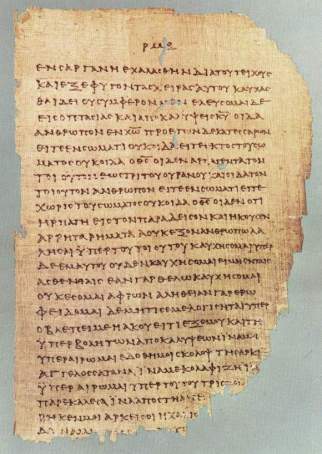 ΕΝ ΣΑΡΓΑΝΗ ΕΧΑΛΑΣΘΗΝ ΔΙΑ ΤΟΥ ΤΕΙΧΟΥΣ
ΚΑΙ ΕΞΕΦΥΓΟΝ ΤΑΣ ΧΕΙΡΑΣ ΑΥΤΟΥ ΚΑΥΧΑΣ
ΘΑΙ ΔΕΙ ΟΥ ΣΥΜΦΕΡΟΝ ΜΕΝ ΕΛΕΥΣΟΜΑΙ ΔΕ
ΕΙΣ ΟΠΤΑΣΙΑΣ ΚΑΙ ΑΠΟΚΑΛΥΨΕΙΣ ΚΥ ΟΙΔΑ
ΑΝΘΡΩΠΟΝ ΕΝ ΧΩ ΠΡΟ ΕΤΩΝ ΔΕΚΑΤΕΣΣΑΡΩΝ
ΕΙΤΕ ΕΝ ΣΩΜΑΤΙ ΟΥΚ ΟΙΔΑ ΕΙΤΕ ΕΚΤΟΣ ΤΟΥ ΣΩ
ΜΑΤΟΣ ΟΥΚ ΟΙΔΑ Ο ΘΣ ΟΙΔΕΝ ΑΡΠΑΓΕΝΤΑ ΤΟΝ
ΤΟΙΟΥΤΟΝ ΕΩΣ ΤΡΙΤΟΥ ΟΥΡΑΝΟΥ ΚΑΙ ΟΙΔΑ ΤΟΝ
ΤΟΙΟΥΤΟΝ ΑΝΘΡΩΠΟΝ ΕΙΤΕ ΕΝ ΣΩΜΑΤΙ ΕΙΤΕ
ΧΩΡΙΣ ΤΟΥ ΣΩΜΑΤΟΣ ΟΥΚ ΟΙΔΑ Ο ΘΣ ΟΙΔΕΝ ΟΤΙ
ΗΡΠΑΓΗ ΕΙΣ ΤΟΝ ΠΑΡΑΔΕΙΣΟΝ ΚΑΙ ΗΚΟΥΣΕΝ
ΑΡΡΗΤΑ ΡΗΜΑΤΑ Α ΟΥΚ ΕΞΟΝ ΑΝΘΡΩΠΩ ΛΑ
ΛΗΣΑΙ ΥΠΕΡ ΤΟΥ ΤΟΙΟΥΤΟΥ ΚΑΥΧΗΣΟΜΑΙ ΥΠΕΡ
ΔΕ ΕΜΑΥΤΟΥ ΟΥΔΕΝ ΚΑΥΧΗΣΟΜΑΙ ΕΙ ΜΗ ΕΝ ΤΑΙΣ
ΑΣΘΕΝΕΙΑΙΣ ΕΑΝ ΓΑΡ ΘΕΛΩ ΚΑΥΧΗΣΟΜΑΙ
ΟΥΚ ΕΣΟΜΑΙ ΑΦΡΩΝ ΑΛΗΘΕΙΑΝ ΓΑΡ ΕΡΩ
ΦΕΙΔΟΜΑΙ ΔΕ ΜΗ ΤΙΣ ΕΜΕ ΛΟΓΙΣΗΤΑΙ ΥΠΕΡ
Ο ΒΛΕΠΕΙ ΜΕ Η ΑΚΟΥΕΙ ΤΙ ΕΞ ΕΜΟΥ ΚΑΙ ΤΗ
ΥΠΕΡΒΟΛΗ ΤΩΝ ΑΠΟΚΑΛΥΨΕΩΝ ΙΝΑ ΜΗ
ΥΠΕΡΑΙΡΩΜΑΙ ΕΔΟΘΗ ΜΟΙ ΣΚΟΛΟΨ ΤΗ ΣΑΡΚΙ
ΑΓΓΕΛΟΣ ΣΑΤΑΝΑ ΙΝΑ ΜΕ ΚΟΛΑΦΙΖΗ
ΥΠΕΡΑΙΡΩΜΑΙ ΥΠΕΡ ΤΟΥΤΟΥ ΤΡΙΣ
ΠΑΡΕΚΑΛΕΣΑ ΙΝΑ ΑΠΟΣΤΗ
ΡΗΚΕΝ ΜΟΙ ΑΡΚΕΙ ΣΟΙ Η